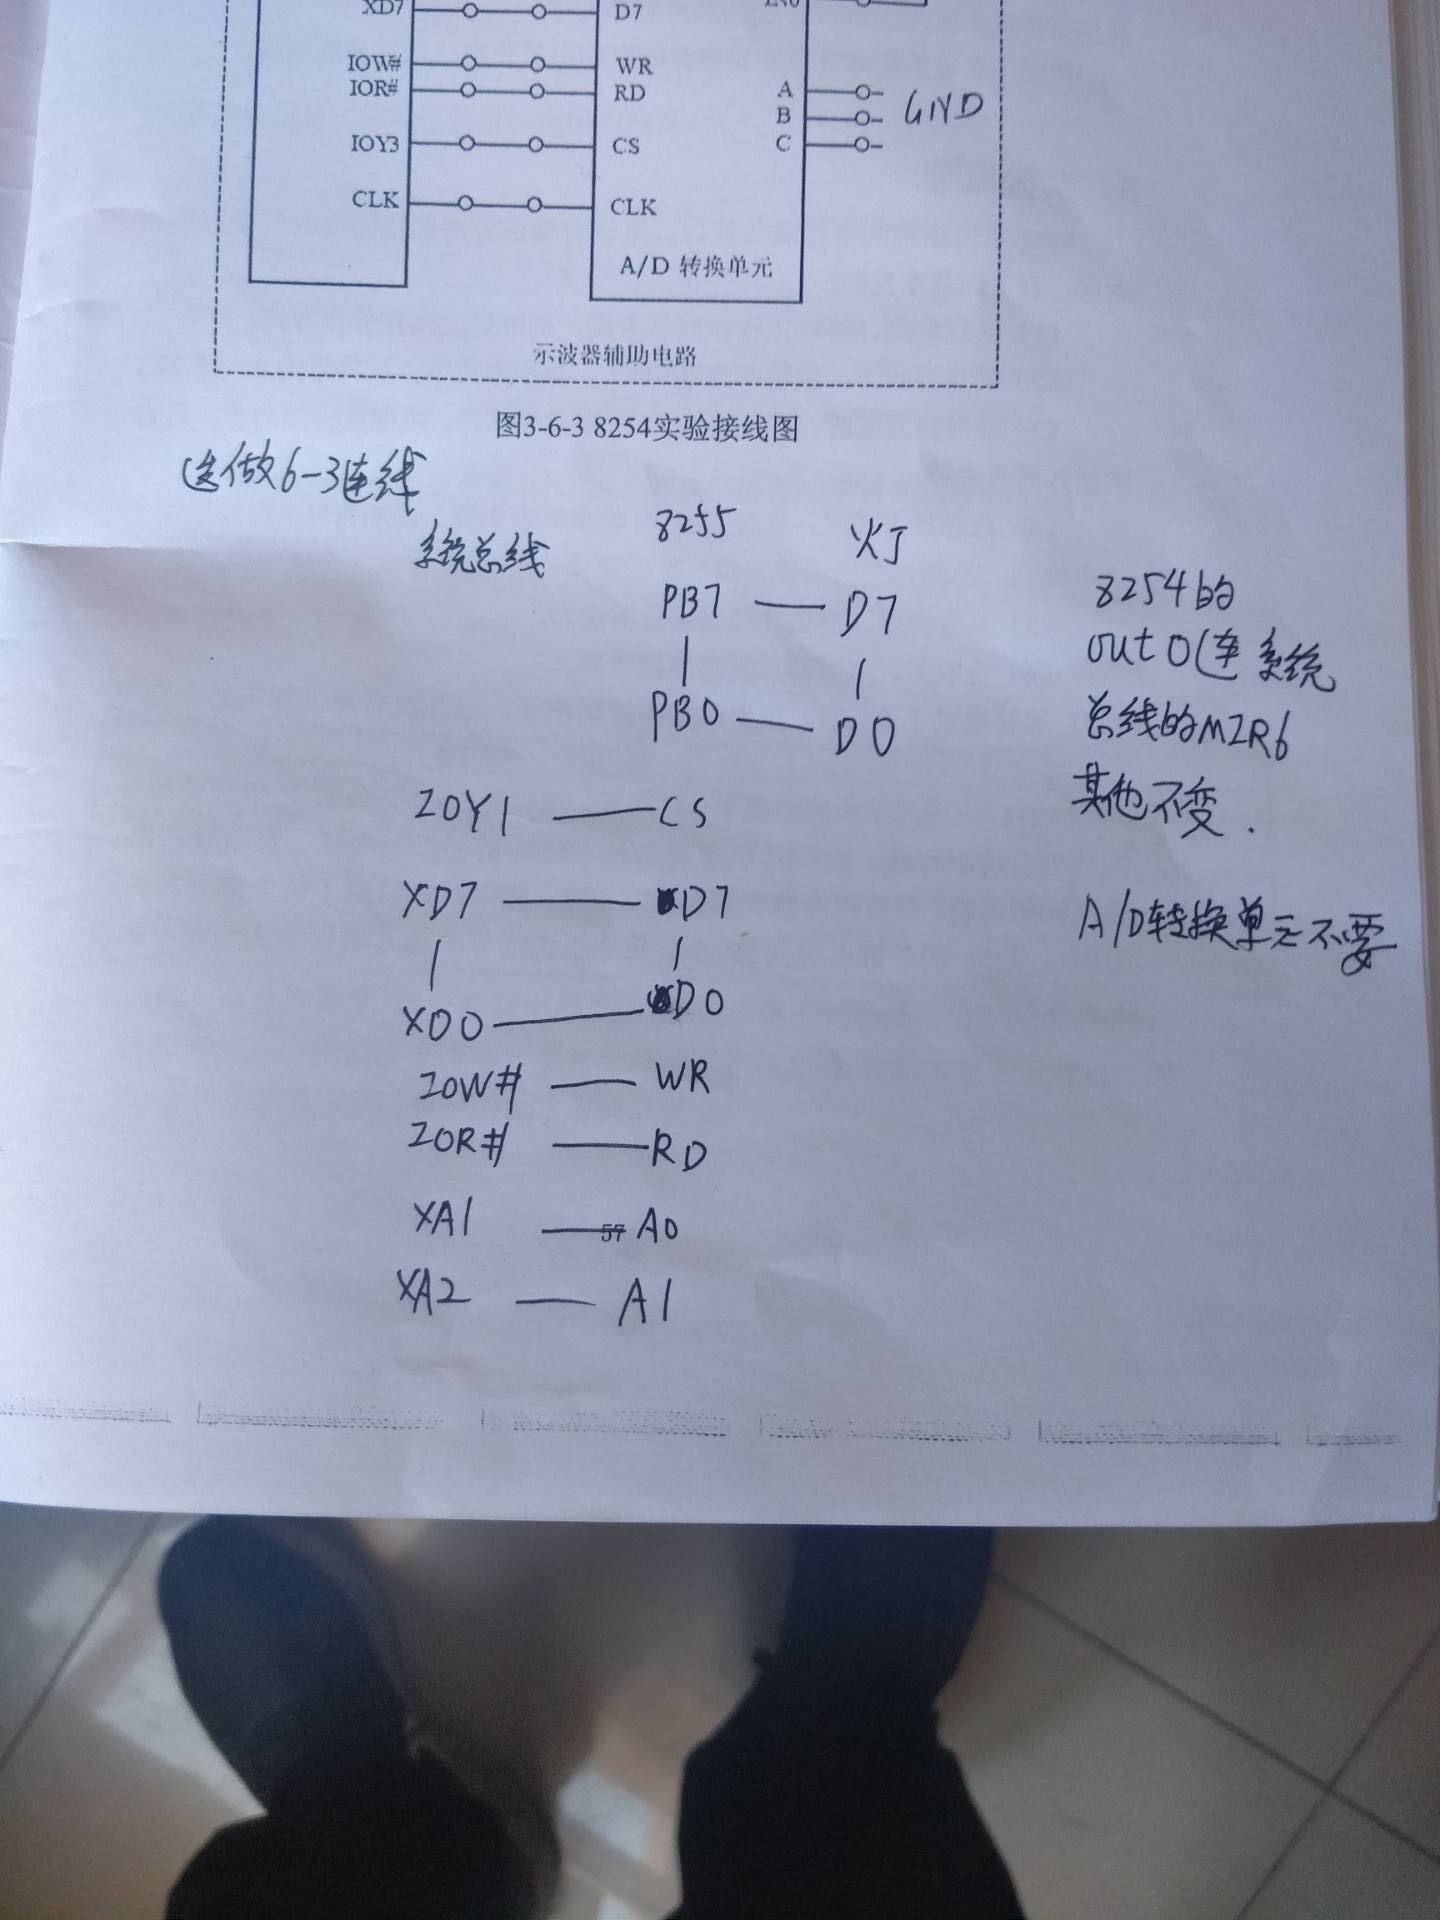 XD7 D7
IOW# WR
IOR# RD A
B GND
IOY3 CS C
CLK CLK
A/D 转换单元
示波器辅助电路
图3-6-3 8254实验接线图
选做6-3连线
系统总线 8255 灯
PB7 — D7
PB0 — D0
IOY1 — CS
XD7 — D7
XD0 — D0
IOW# — WR
IOR# — RD
XA1 — A0
57
XA2 — A1
8254的
out0连系统
总线的MIR6
其他不变.
A/D转换单元不要